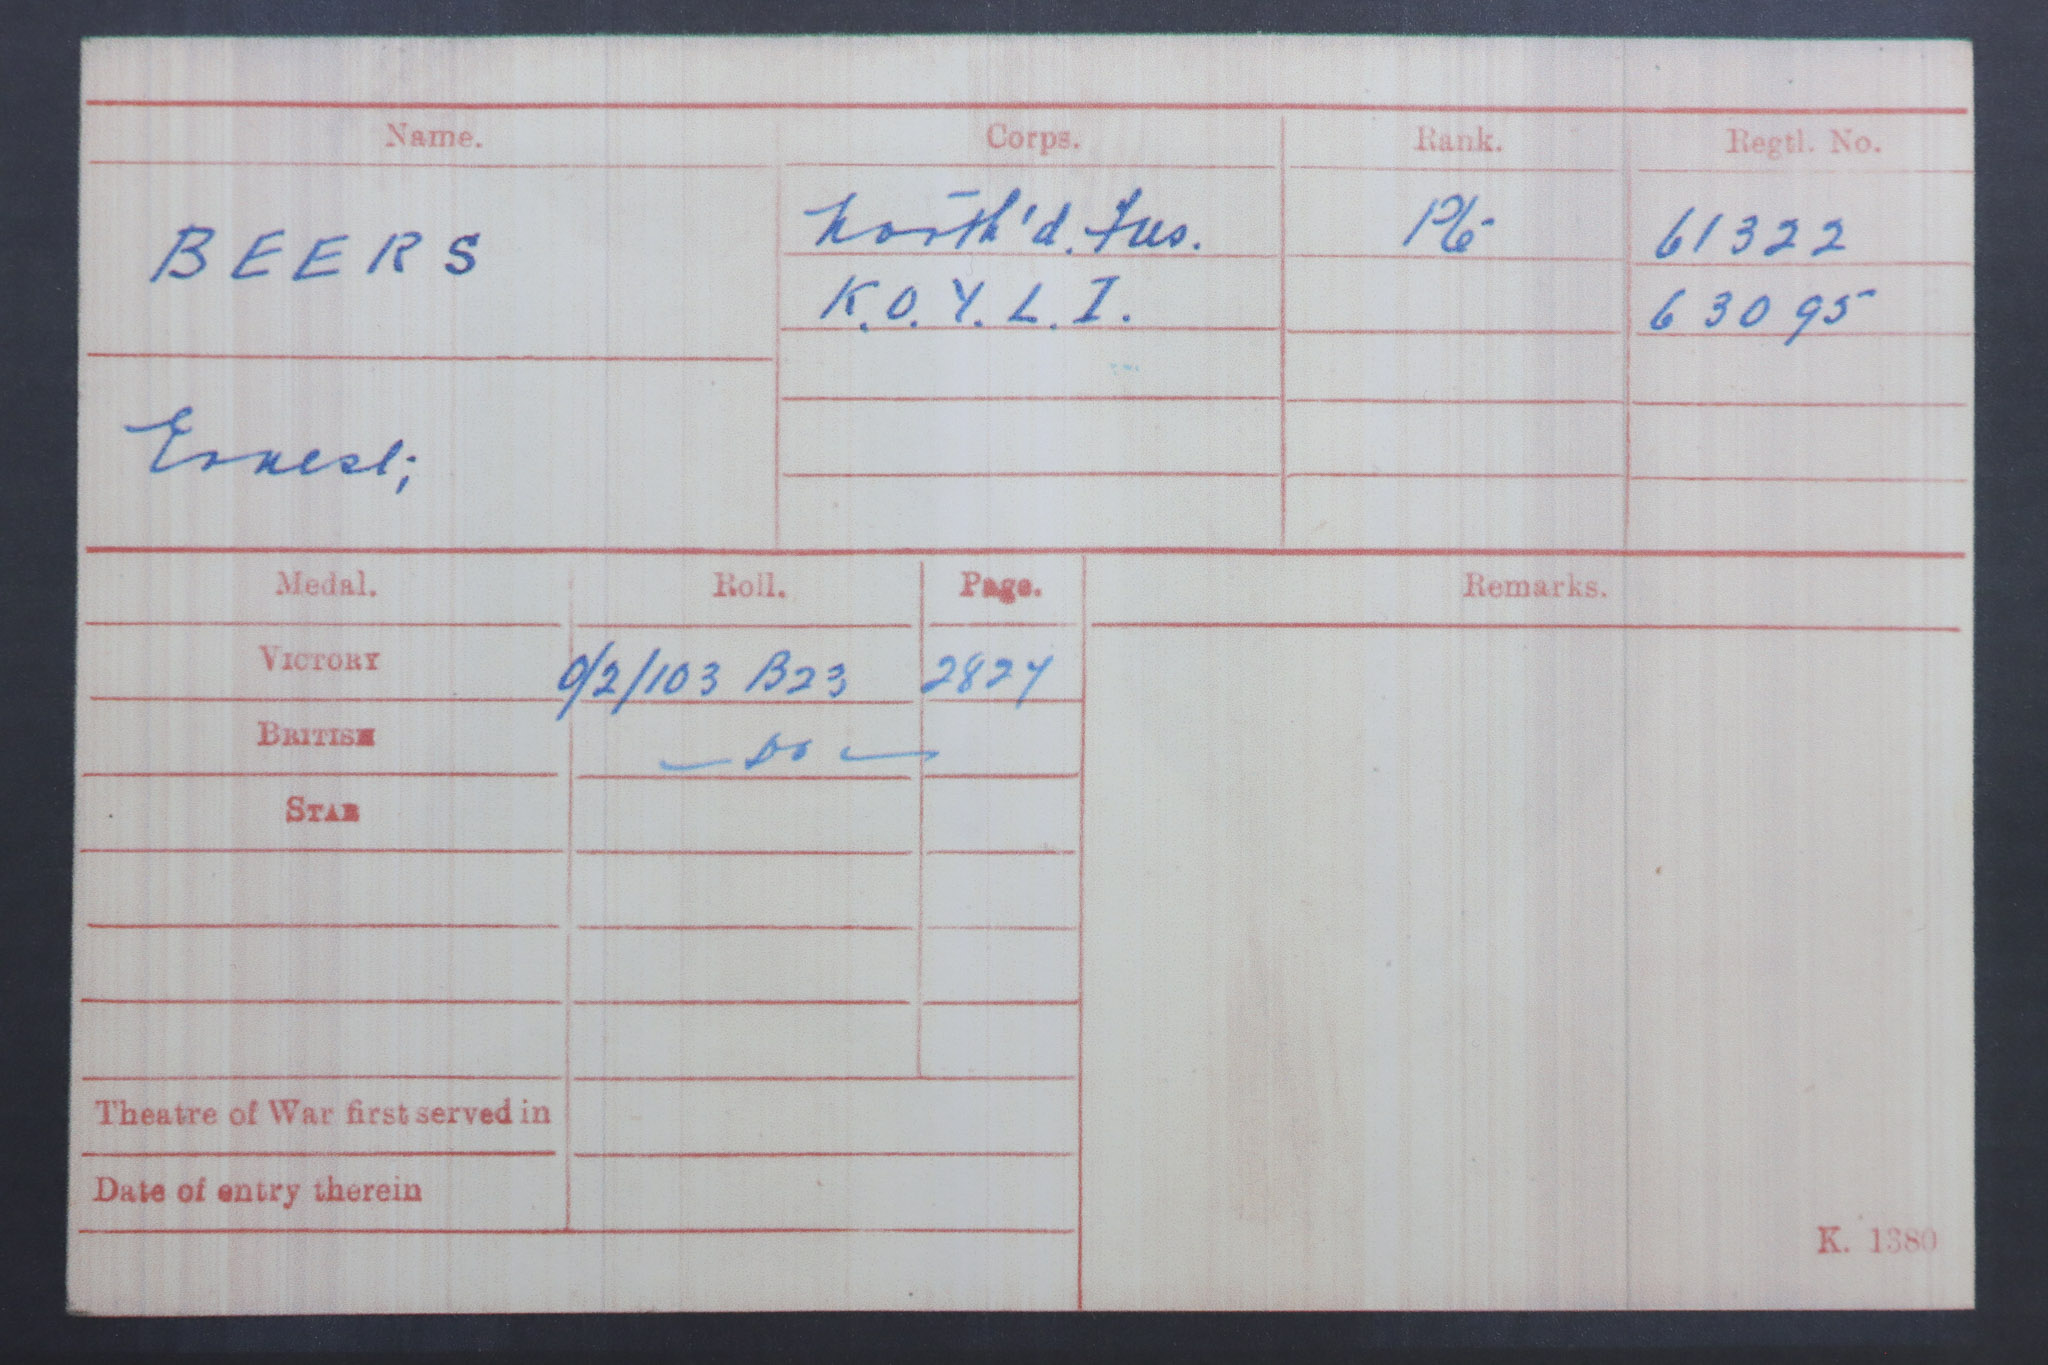 Name. Corps. Rank. Regtl. No.
BEERS North'd. Fus. Pte 61322
K.O.Y.L.I. 63095
Ernest;
Medal. Roll. Page. Remarks.
VICTORY O/2/103 B23 2827
BRITISH — Do —
STAR
Theatre of War first served in
Date of entry therein
K. 1380